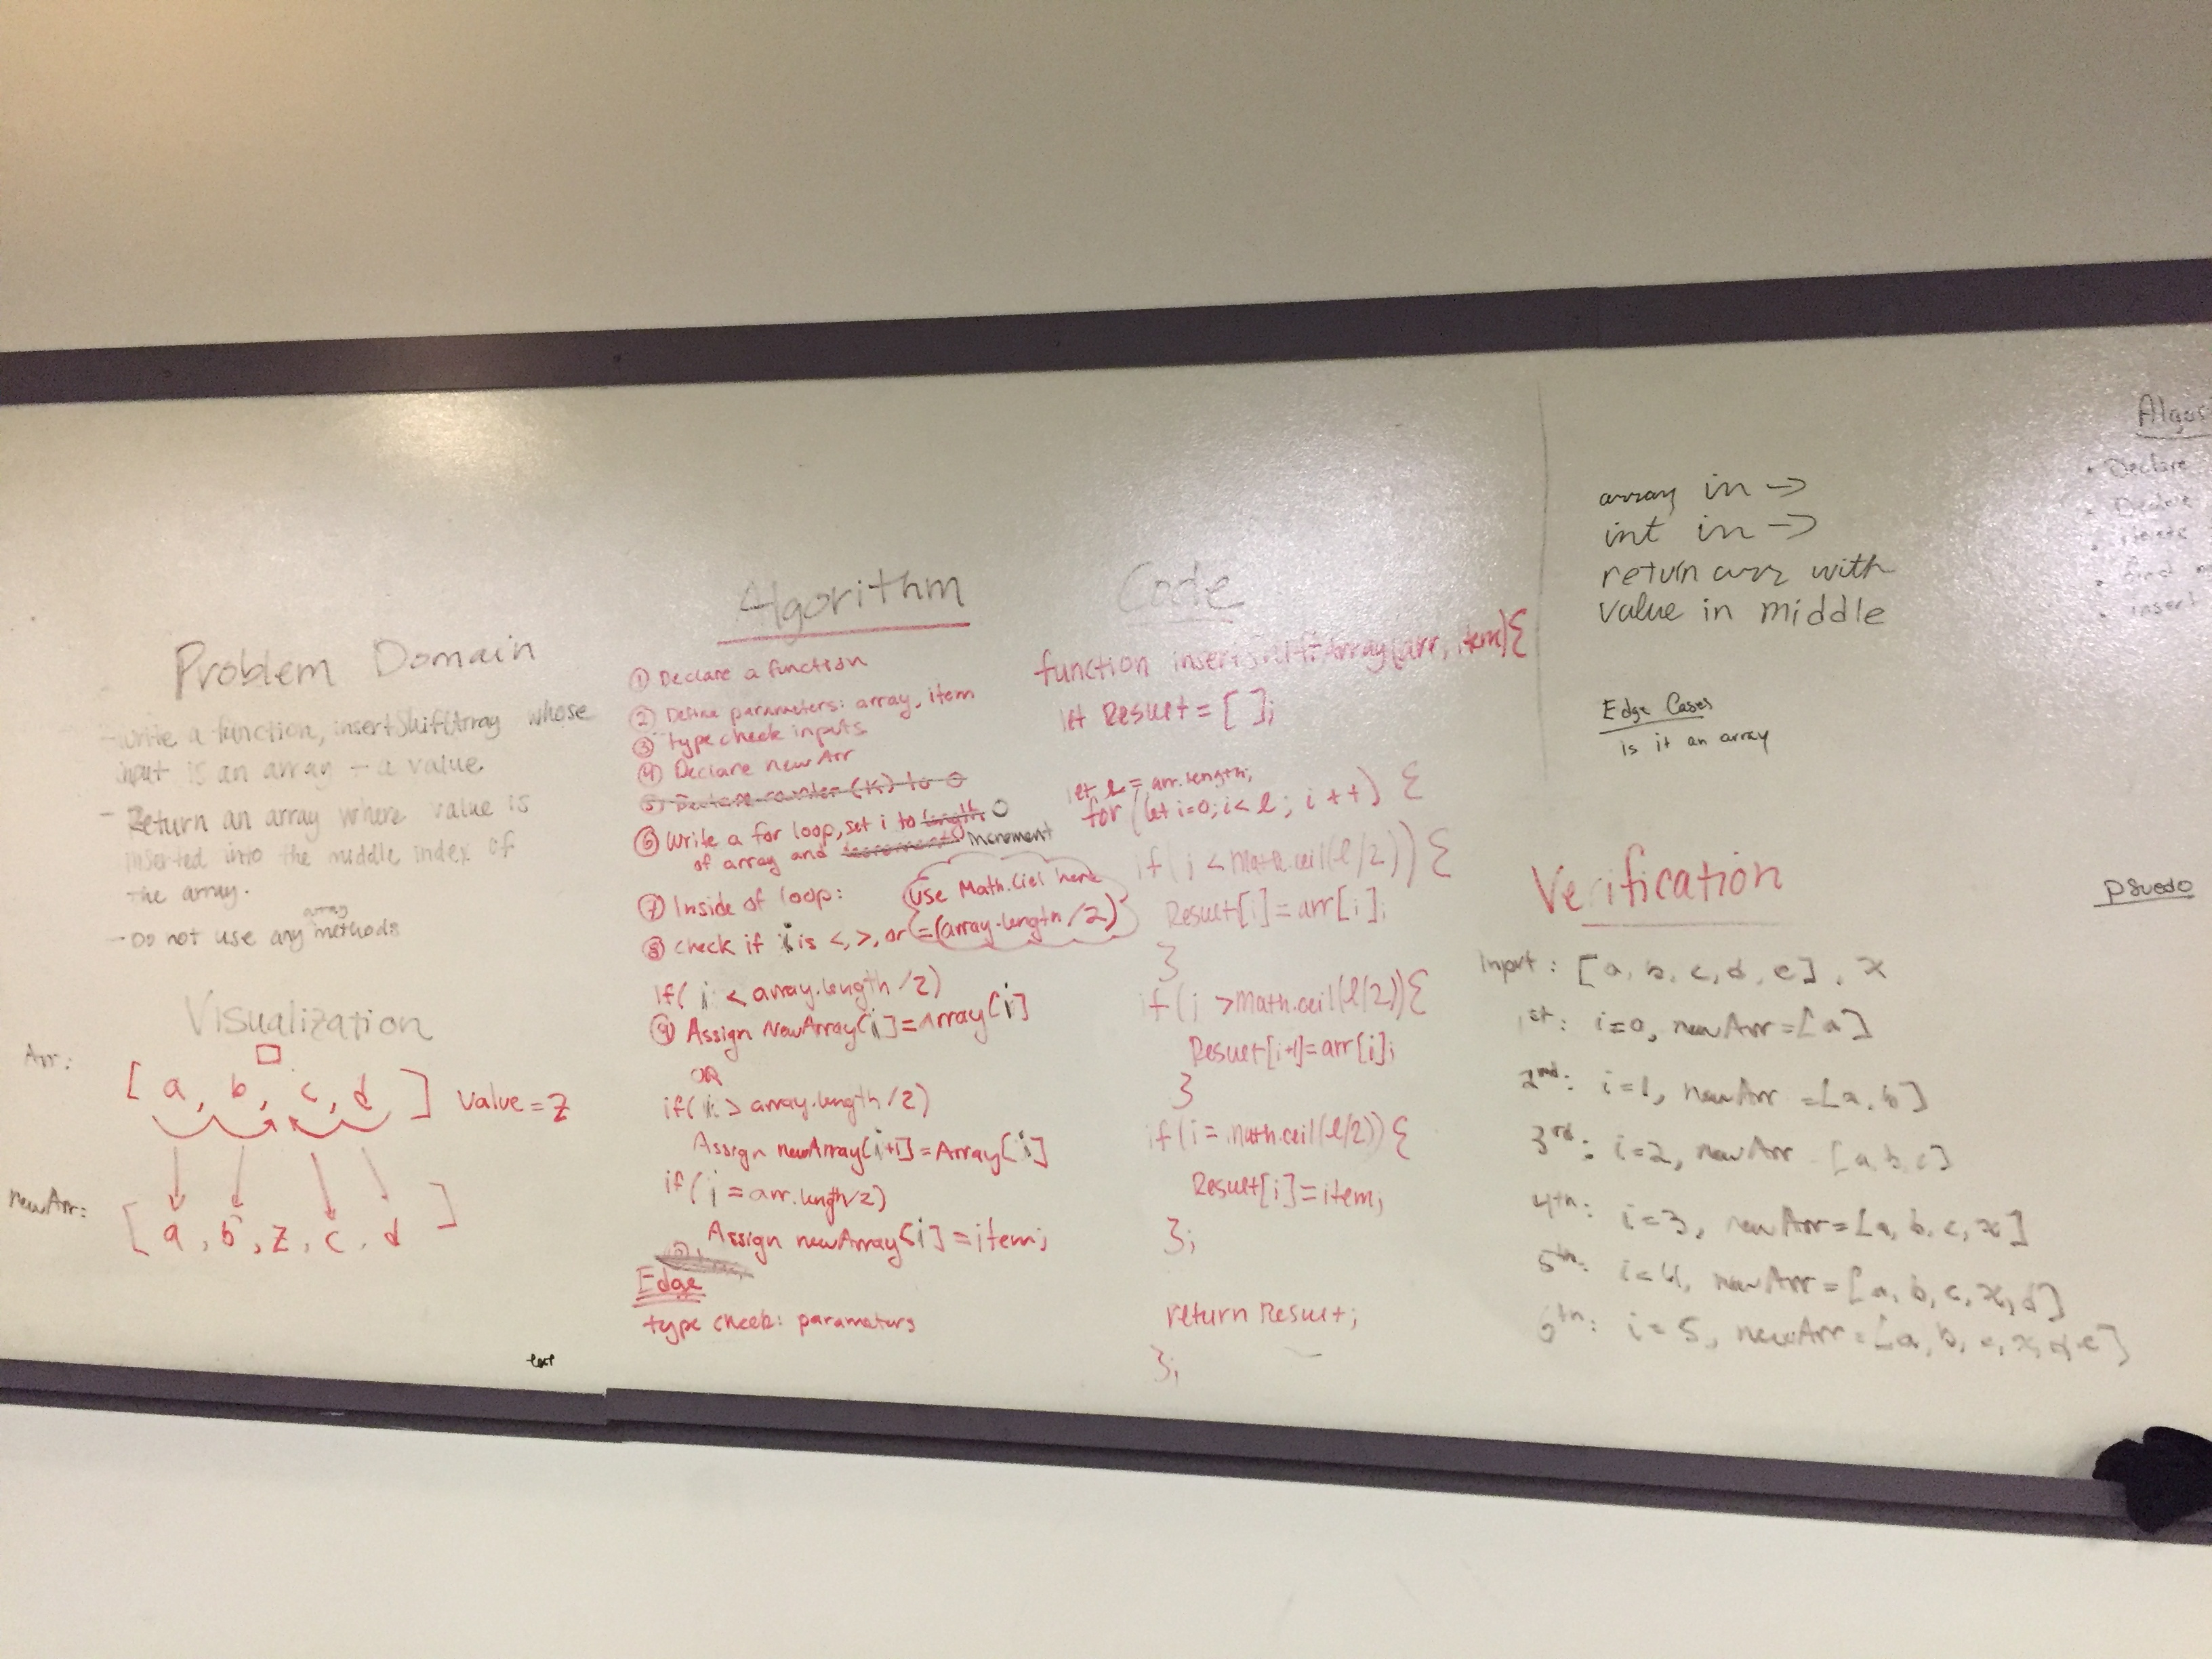 Problem Domain
- Write a function, insertShiftArray whose
input is an array + a value
- Return an array where value is
inserted into the middle index of
the array.
array
- Do not use any methods
Visualization
Arr:
[ a, b, c, d ] value = z
newArr:
[ a, b, z, c, d ]
Algorithm
① Declare a function
② Define parameters: array, item
③ typecheck inputs
④ Declare new Arr
⑤ Declare counter (K) to 0
⑥ Write a for loop, set i to length 0
of array and decrement increment
⑦ Inside of loop:
use Math.Ciel here
⑧ check if i is <, >, or =(array.length/2)
if( i < array.length/2)
⑨ Assign NewArray[i]=Array[i]
OR
if(i > array.length/2)
Assign newArray[i+1]=Array[i]
if( i = arr.length/2)
Assign newArray[i]=item;
Edge
type check: paramaters
test
Code
function insertShiftArray(arr, item){
let Result = [ ];
let l = arr.length;
for (let i=0; i<l; i++) {
if(i < Math.ceil(l/2)){
Result[i]=arr[i];
}
if(i >Math.ceil(l/2)){
Result[i+1]=arr[i];
}
if(i = math.ceil(l/2)){
Result[i]=item;
};
return Result;
};
array in →
int in →
return arr with
value in middle
Edge Cases
is it an array
Verification
Input: [a, b, c, d, e], x
1st: i=0, newArr=[a]
2nd: i=1, newArr=[a, b]
3rd: i=2, newArr [a, b, c]
4th: i=3, newArr=[a, b, c, x]
5th: i=4, newArr=[a, b, c, x, d]
6th: i=5, newArr=[a, b, c, x, d e]
Algor
• Declare
• Declare
•
• find
• insert
psuedo